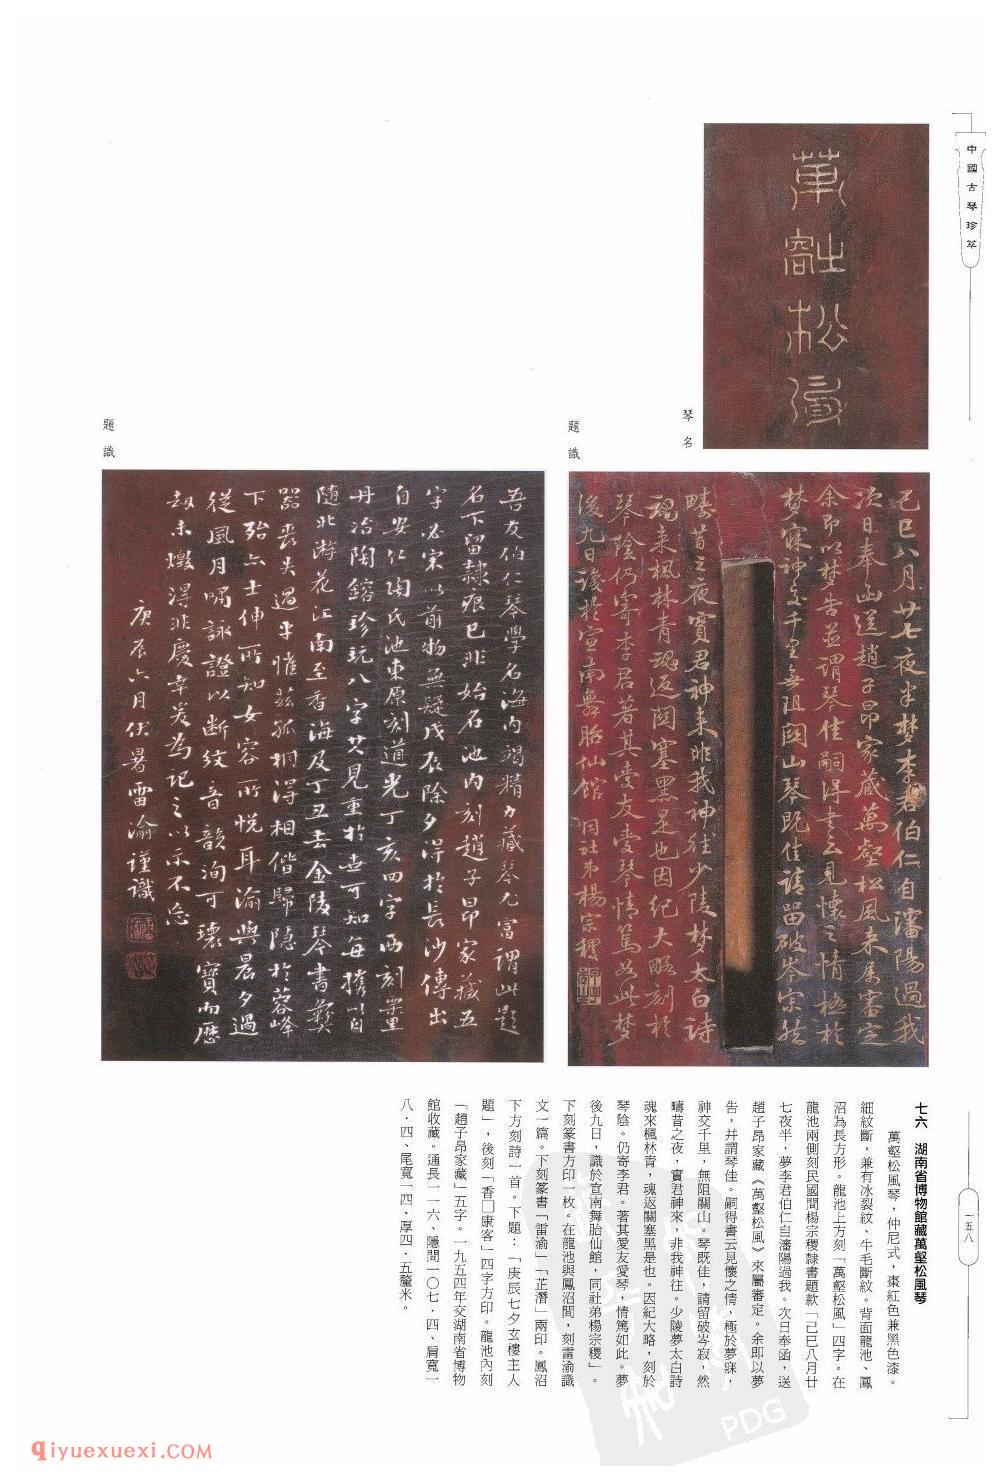 中國古琴珍萃
一五八
萬壑松風
琴名
題識
己巳八月廿七夜半梦李君伯仁自瀋陽過我
次日奉函送趙子昂家藏萬壑松風来屬審定
余即以梦告並謂琴佳嗣得書云見懷之情極於
梦寐神交千里無阻関山琴既佳請留破岑寂然
疇昔之夜實君神来非我神往少陵梦太白詩
魂来楓林青魂返関塞黑是也因紀大略刻於
琴陰仍寄李君著其愛友愛琴情篤如此梦
後九日識於宣南舞胎仙館 同社弟楊宗稷
題識
吾友伯仁琴學名海内竭精力藏琴尤富謂此題
名下留隸痕已非始名池内刻趙子昂家藏五
字必宋以前物無疑戊辰除夕得於長沙傳出
自安仁陶氏池東原刻道光丁亥四字西刻
丹冶陶鎔珍玩八字其見重於世可知每攜以自
随北游花江南至香海及丁丑去金陵琴書
器丧失過半惟兹孤桐得相偕歸隐於蓉峰
下殆亦士伸所知女容所悦耳渝與晨夕過
從風月嘯詠證以断纹音韻洵可瓌寶而歷
劫未燬得非慶幸爰為記之以示不忘
庚辰六月伏暑雷渝謹識
七六 湖南省博物館藏萬壑松風琴
萬壑松風琴，仲尼式，棗紅色兼黑色漆。
細紋斷，兼有冰裂紋、牛毛斷紋。背面龍池、鳳
沼為長方形。龍池上方刻「萬壑松風」四字。在
龍池兩側刻民國間楊宗稷隸書題款「己巳八月廿
七夜半，夢李君伯仁自瀋陽過我。次日奉函，送
趙子昂家藏《萬壑松風》來屬審定。余即以夢
告，并謂琴佳。嗣得書云見懷之情，極於夢寐，
神交千里，無阻關山。琴既佳，請留破岑寂，然
疇昔之夜，實君神來，非我神往。少陵夢太白詩
魂來楓林青，魂返關塞黑是也。因紀大略，刻於
琴陰。仍寄李君。著其愛友愛琴，情篤如此。夢
後九日，識於宣南舞胎仙館，同社弟楊宗稷」。
下刻篆書方印一枚。在龍池與鳳沼間，刻雷渝識
文一篇。下刻篆書「雷渝」「芷潛」兩印。鳳沼
下方刻詩一首。下題：「庚辰七夕玄樓主人
題」，後刻「香□康客」四字方印。龍池內刻
「趙子昂家藏」五字。一九五四年交湖南省博物
館收藏。通長一一六、隱間一〇七·四、肩寬一
八·四、尾寬一四、厚四·五釐米。
PDG
qiyuexuexi.com